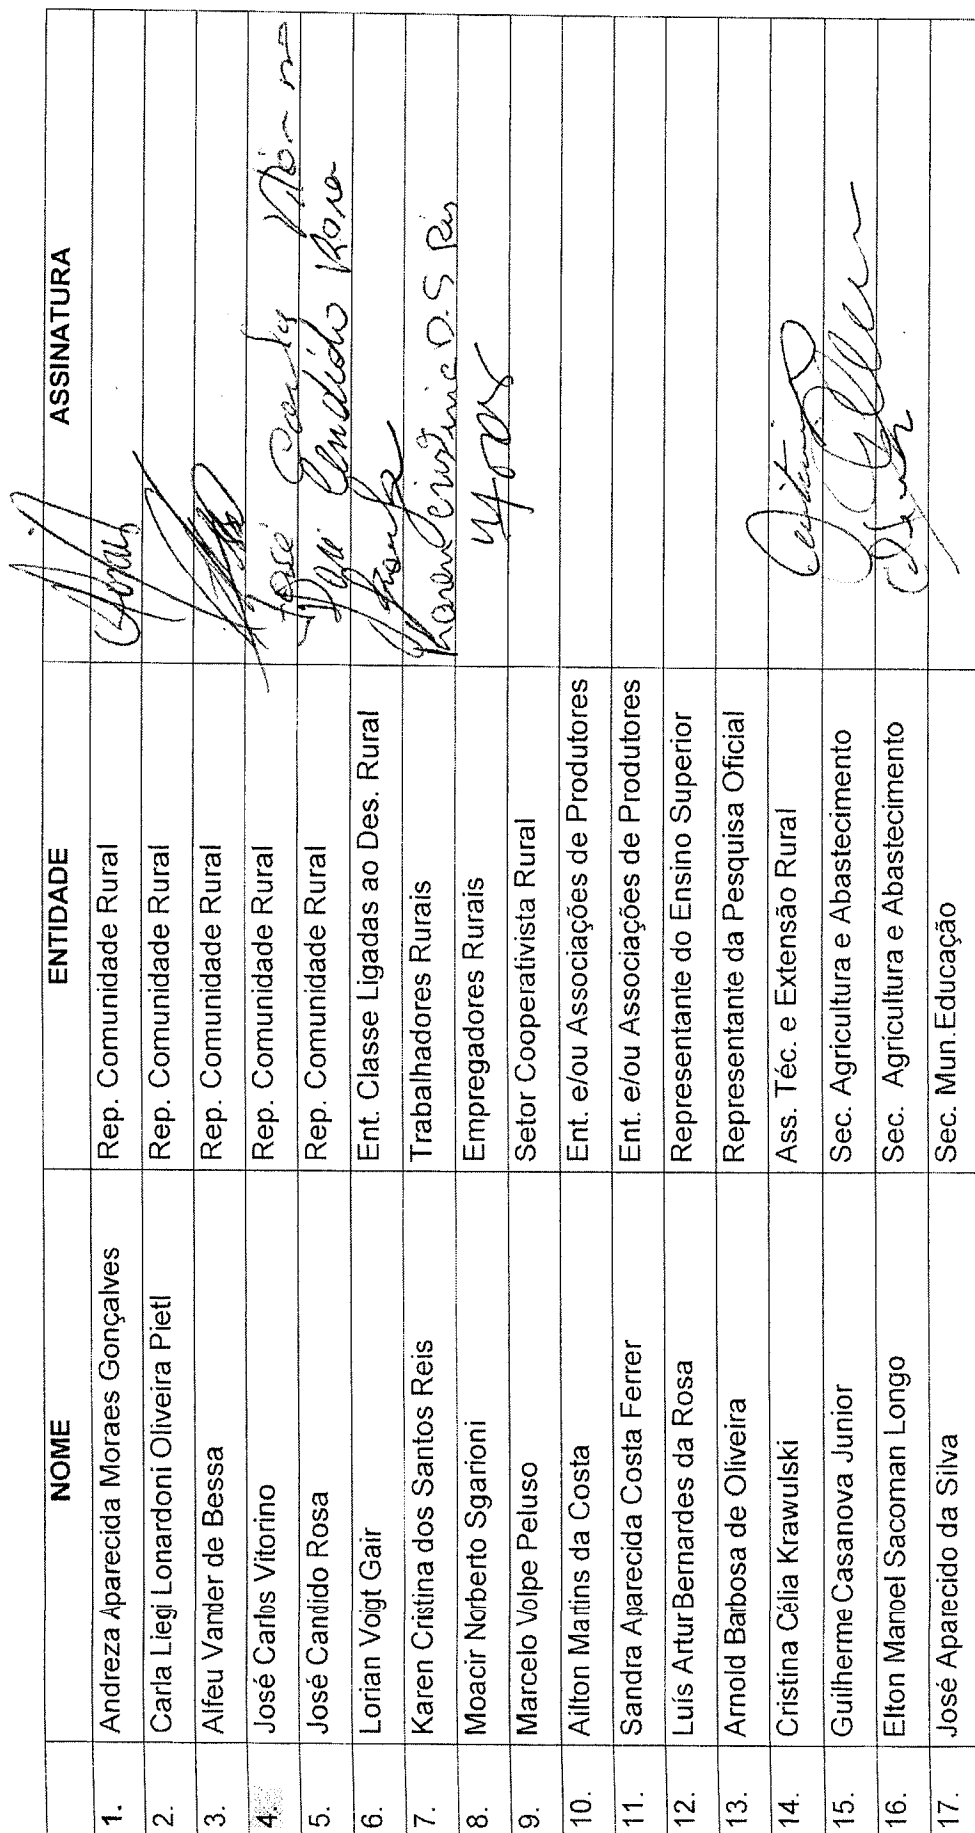 NOME ENTIDADE ASSINATURA
1. Andreza Aparecida Moraes Gonçalves Rep. Comunidade Rural
2. Carla Liegi Lonardoni Oliveira Pietl Rep. Comunidade Rural
3. Alfeu Vander de Bessa Rep. Comunidade Rural
4. José Carlos Vitorino Rep. Comunidade Rural José Carlos
5. José Candido Rosa Rep. Comunidade Rural José Candido Rosa
6. Lorian Voigt Gair Ent. Classe Ligadas ao Des. Rural
7. Karen Cristina dos Santos Reis Trabalhadores Rurais Karen Cristina D. S. Reis
8. Moacir Norberto Sgarioni Empregadores Rurais
9. Marcelo Volpe Peluso Setor Cooperativista Rural
10. Ailton Martins da Costa Ent. e/ou Associações de Produtores
11. Sandra Aparecida Costa Ferrer Ent. e/ou Associações de Produtores
12. Luís Artur Bernardes da Rosa Representante do Ensino Superior
13. Arnold Barbosa de Oliveira Representante da Pesquisa Oficial
14. Cristina Célia Krawulski Ass. Téc. e Extensão Rural
15. Guilherme Casanova Junior Sec. Agricultura e Abastecimento
16. Elton Manoel Sacoman Longo Sec. Agricultura e Abastecimento
17. José Aparecido da Silva Sec. Mun.Educação